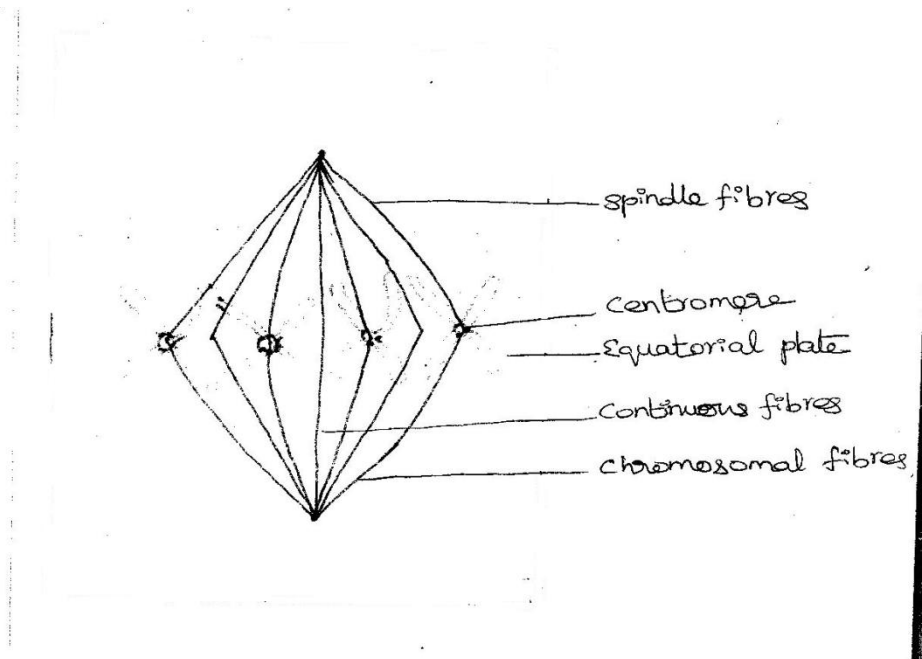 spindle fibres
centromere
Equatorial plate
continuous fibres
chromosomal fibres.